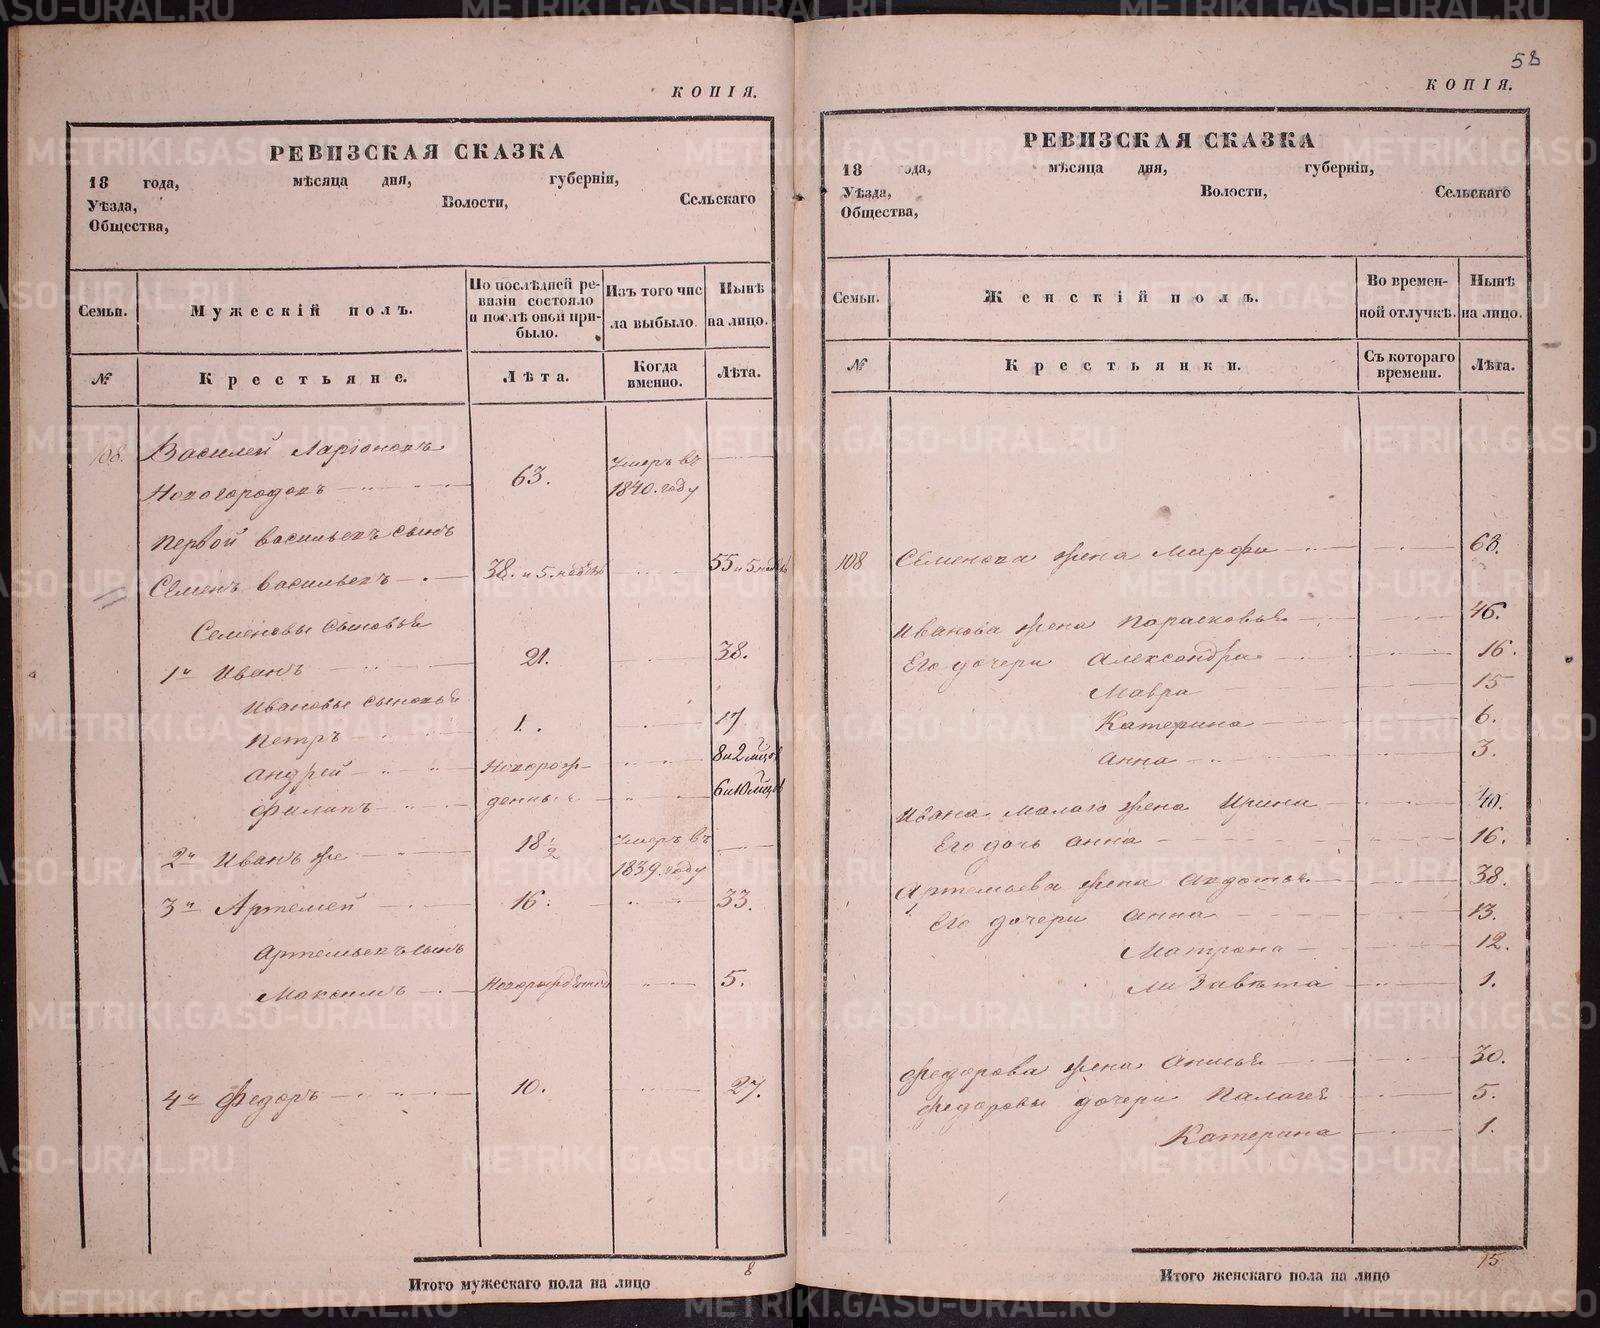 КОПІЯ.
РЕВИЗСКАЯ СКАЗКА
18 года, мѣсяца дня, губерніи,
Уѣзда, Волости, Сельскаго
Общества,
Семьи. Мужескій полъ. По послѣдней ревизіи состояло и послѣ оной прибыло. Изъ того числа выбыло. Нынѣ на лицо.
№ Крестьяне. Лѣта. Когда именно. Лѣта.
108. Василей Ларіоновъ
Новогородовъ 63. Умеръ въ 1840. году
Первой Васильевъ сынъ
Семенъ Васильевъ 38. и 5. 55 и 5
Семеновы сыновья
1й Иванъ 21. 38.
Ивановы сыновья
Петръ 1. 17
Андрей Новорож- 8 и 2
Филипъ денные 6 и 10
2й Иванъ же 18 1/2 Умеръ въ 1839. году
3й Артемей 16. 33.
Артемьевъ сынъ
Максимъ 5.
4й Федоръ 10. 27.
8
Итого мужескаго пола на лицо
58
КОПІЯ.
РЕВИЗСКАЯ СКАЗКА
18 года, мѣсяца дня, губерніи,
Уѣзда, Волости, Сельскаго
Общества,
Семьи. Женскій полъ. Во временной отлучкѣ. Нынѣ на лицо.
№ Крестьянки. Съ котораго времени. Лѣта.
108 Семенова жена Марфа 63.
Иванова жена Парасковья 46.
Его дочери Александра 16.
Мавра 15
Катерина 6.
Анна 3.
Ивана малаго жена Ирина 40.
Его дочь Анна 16.
Артемьева жена Авдотья 38.
Его дочери Анна 13.
Матрона 12.
Лизавѣта 1.
Федорова жена Анисья 30.
Федоровы дочери Палагея 5.
Катерина 1.
15
Итого женскаго пола на лицо
METRIKI.GASO-URAL.RU